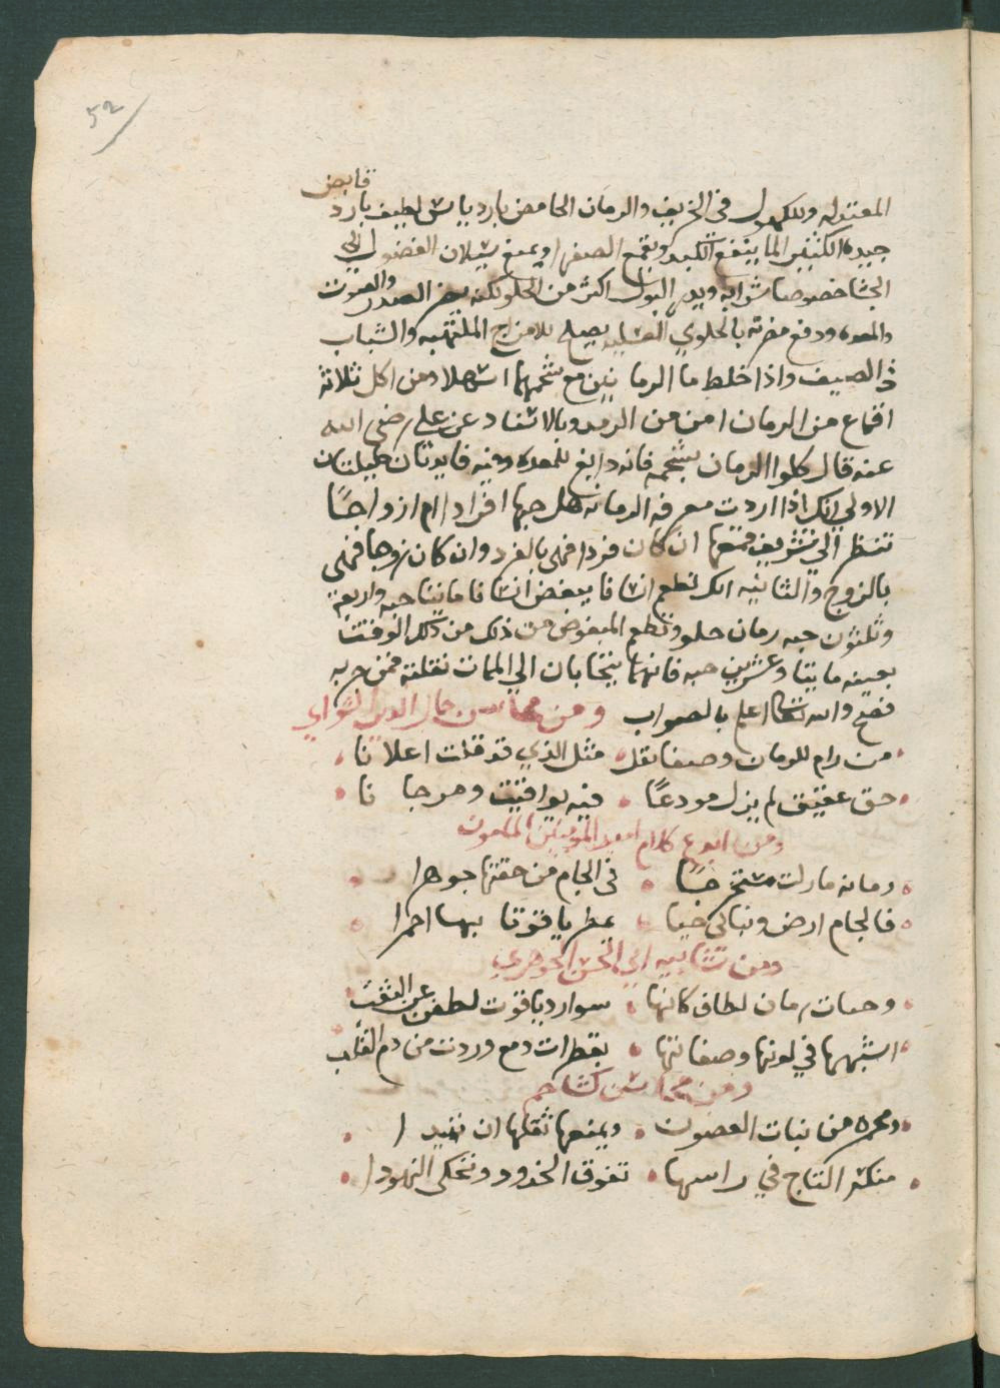 52
قابض
المعتدله وللكهول في الخريف والرمان الحامض بارد يابس لطيف بارد
جيده الكثير الما ينفع الكبد ويقمع الصفرا ويمنع سيلان الفضول الي
الحشا خصوصا شرابه ويدر البول اكثر من الحلو لكنه يضر الصدر والصوت
والمعده ودفع مضرته بالحلوي العسليه يصلح للامزاج الملتهبه والشباب
في الصيف واذا خلط ما الرمانين مع شحمهما اسهلا ومن اكل ثلاثة
اقماع من الرمان امن من الرمد وبالاسناد عن علي رضي الله
عنه قال كلوا الرمان بشحمه فانه دابغ للمعده وفيه فايدتان طبيتان
الاولي انك اذا اردت معرفة الرمانه هل حبها افرادا ام ازواجا
تنظر الي تشريف قمعها ان كان فردا فهي بالفرد وان كان زوجا فهي
بالزوج والثانيه انك تطعم انسانا يبغض انسانا مايتا حبه واربعة
وثلثون حبه رمان حلو وتطعم المبغوض من ذلك من ذلك الوقت
بعينه مايتا وعشرين حبه فانهما يتحابان الي الممات نقلته ممن جربه
فصح والله تعالى اعلم بالصواب ومن محاسن
من رام للرمان وصفا يقل مثل الذي قد قلت اعلانا
حق عقيق لم يزل مودعًا فيه يواقيت ومرجانا
ومن ابدع كلام امير المومنين المامون
رمانه مازلت مستخرجًا في الجام من حقتها جوهرا
فالجام ارض وبناني حيا يمطر ياقوتا بها احمرا
ومن تشابيه ابي الحسن الجوهري
وحبات رمان لطاف كانها سوارد ياقوت لطفن عن الثقب
اشبهها في لونها وصفاتها بقطرات دمع وردت من دم القلب
ومن محاسن كشاجم
ومحمره من نبات الغصون ويمنعها ثقلها ان تميدا
منكسة التاج في راسها تفوق الخدود وتحكي النهودا